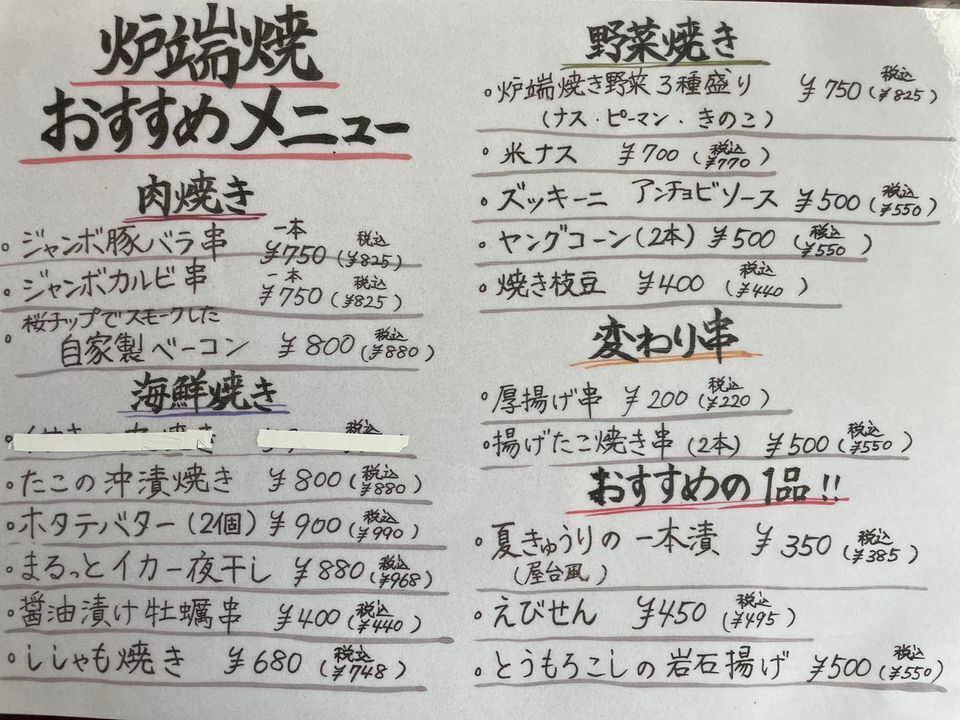 炉端焼
おすすめメニュー
肉焼き
・ジャンボ豚バラ串 一本 ¥750 (税込 ¥825)
・ジャンボカルビ串 一本 ¥750 (税込 ¥825)
・桜チップでスモークした
自家製ベーコン ¥800 (税込 ¥880)
海鮮焼き
・たこの沖漬焼き ¥800 (税込 ¥880)
・ホタテバター(2個) ¥900 (税込 ¥990)
・まるっとイカ一夜干し ¥880 (税込 ¥968)
・醤油漬け牡蠣串 ¥400 (税込 ¥440)
・ししゃも焼き ¥680 (税込 ¥748)
野菜焼き
・炉端焼き野菜3種盛り ¥750 (税込 ¥825)
(ナス・ピーマン・きのこ)
・米ナス ¥700 (税込 ¥770)
・ズッキーニ アンチョビソース ¥500 (税込 ¥550)
・ヤングコーン(2本) ¥500 (税込 ¥550)
・焼き枝豆 ¥400 (税込 ¥440)
変わり串
・厚揚げ串 ¥200 (税込 ¥220)
・揚げたこ焼き串(2本) ¥500 (税込 ¥550)
おすすめの1品!!
・夏きゅうりの一本漬 ¥350 (税込 ¥385)
(屋台風)
・えびせん ¥450 (税込 ¥495)
・とうもろこしの岩石揚げ ¥500 (税込 ¥550)